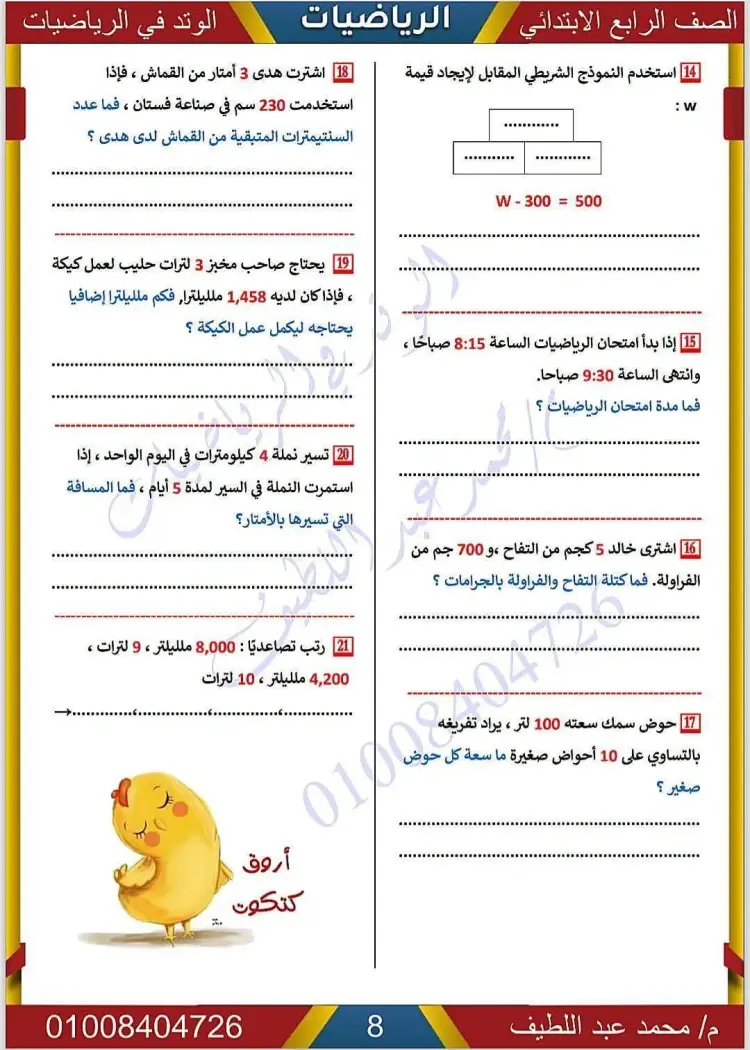 الصف الرابع الابتدائي
الرياضيات
الوتد في الرياضيات
14 استخدم النموذج الشريطي المقابل لإيجاد قيمة
w :
............
........... ............
W - 300 = 500
15 إذا بدأ امتحان الرياضيات الساعة 8:15 صباحًا ،
وانتهى الساعة 9:30 صباحا.
فما مدة امتحان الرياضيات ؟
16 اشترى خالد 5 كجم من التفاح ،و 700 جم من
الفراولة. فما كتلة التفاح والفراولة بالجرامات ؟
17 حوض سمك سعته 100 لتر ، يراد تفريغه
بالتساوي على 10 أحواض صغيرة ما سعة كل حوض
صغير ؟
18 اشترت هدى 3 أمتار من القماش ، فإذا
استخدمت 230 سم في صناعة فستان ، فما عدد
السنتيمترات المتبقية من القماش لدى هدى ؟
19 يحتاج صاحب مخبز 3 لترات حليب لعمل كيكة
، فإذا كان لديه 1,458 ملليلترا, فكم ملليلترا إضافيا
يحتاجه ليكمل عمل الكيكة ؟
20 تسير نملة 4 كيلومترات في اليوم الواحد ، إذا
استمرت النملة في السير لمدة 5 أيام ، فما المسافة
التي تسيرها بالأمتار؟
21 رتب تصاعديًا : 8,000 ملليلتر ، 9 لترات ،
4,200 ملليلتر ، 10 لترات
..............،..............،..............،..............←
أروق
كتكوت
الوتد في الرياضيات
م/ محمد عبد اللطيف
01008404726
م/ محمد عبد اللطيف
8
01008404726